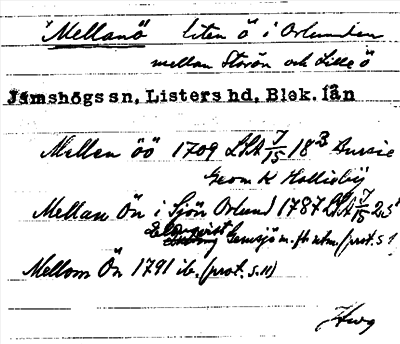 Mellanö liten ö i Orlunden
mellan Storön och Lille ö
Jämshögs sn, Listers hd, Blek. län
Mellen öö 1709 LSA 7/15 18³
Geom K
Mellan Ön i Sjön Orlund 1787 LSA 7/15 2,5
m. fl. (prot. s 1
Mellom Ön 1791 ib. (prot. s. 11)